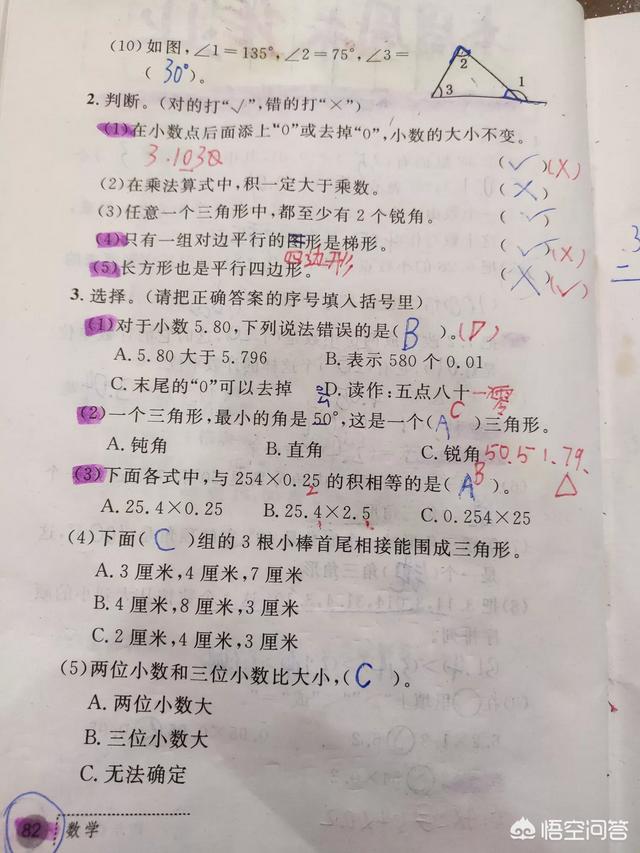 (10)如图,∠1=135°,∠2=75°,∠3=
(30°)。
2
3
1
2.判断。(对的打“√”,错的打“×”)
(1)在小数点后面添上“0”或去掉“0”,小数的大小不变。
3.1030 (√)(×)
(2)在乘法算式中,积一定大于乘数。 (×)
(3)任意一个三角形中,都至少有2个锐角。 (√)
(4)只有一组对边平行的图形是梯形。 (√)(×)
四边形
(5)长方形也是平行四边形。 (×)(√)
3.选择。(请把正确答案的序号填入括号里)
(1)对于小数5.80,下列说法错误的是(B)。(D)
A.5.80大于5.796 B.表示580个0.01
C.末尾的“0”可以去掉 D.读作:五点八十 零
(2)一个三角形,最小的角是50°,这是一个(A)三角形。 C
A.钝角 B.直角 C.锐角 50.51.79.
(3)下面各式中,与254×0.25的积相等的是(A)。 B
A.25.4×0.25 B.25.4×2.5 C.0.254×25
(4)下面(C)组的3根小棒首尾相接能围成三角形。
A.3厘米,4厘米,7厘米
B.4厘米,8厘米,3厘米
C.2厘米,4厘米,3厘米
(5)两位小数和三位小数比大小,(C)。
A.两位小数大
B.三位小数大
C.无法确定
82 数学
悟空问答